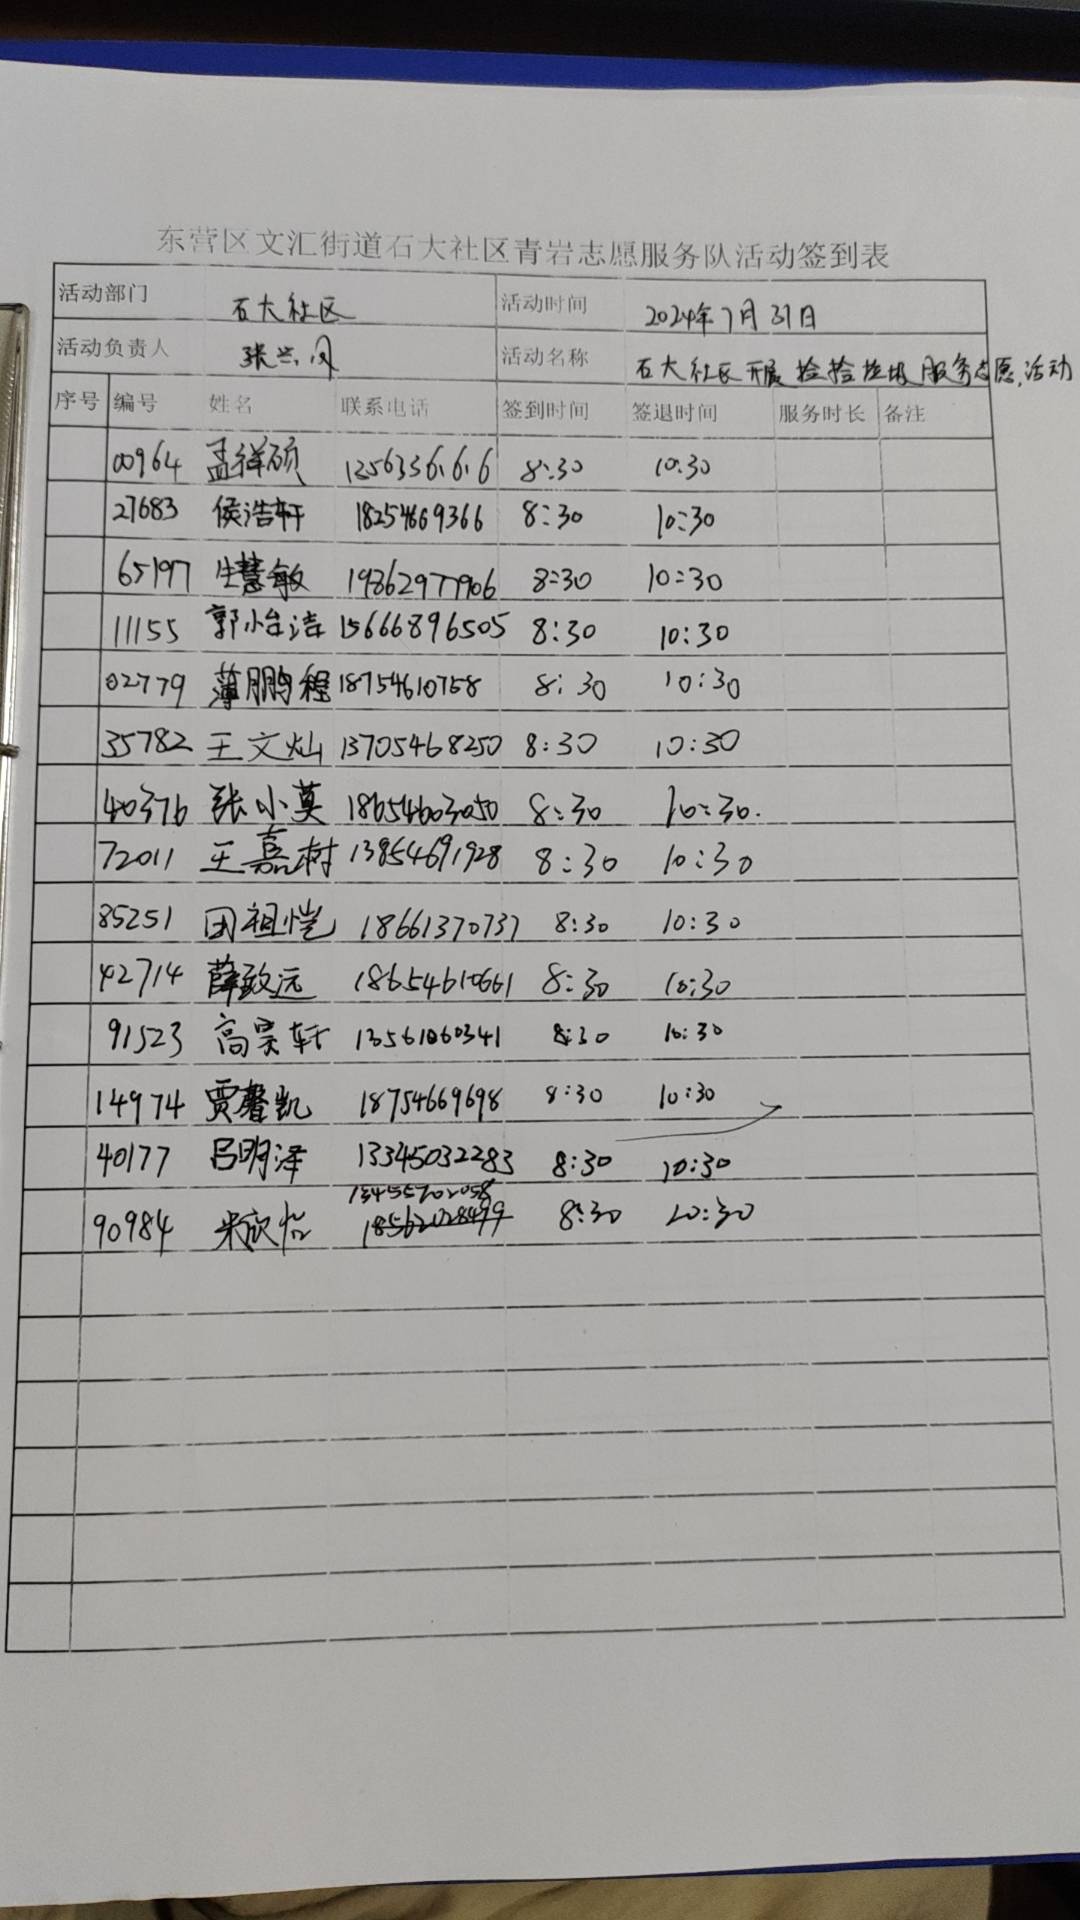 东营区文汇街道石大社区青岩志愿服务队活动签到表
活动部门 石大社区 活动时间 2024年7月31日
活动负责人 张兰凤 活动名称 石大社区开展捡拾垃圾服务志愿活动
序号 编号 姓名 联系电话 签到时间 签退时间 服务时长 备注
00964 孟祥硕 8:30 10:30
27683 侯浩轩 18254669366 8:30 10:30
65197 生慧敏 19862977906 8:30 10:30
11155 郭怡洁 15666896505 8:30 10:30
02779 薄鹏程 18754610758 8:30 10:30
35782 王文灿 13705468250 8:30 10:30
40376 张小莫 18654603050 8:30 10:30.
72011 王嘉树 13854691928 8:30 10:30
85251 田祖恺 18661370737 8:30 10:30
42714 薛致远 18654610661 8:30 10:30
91523 高昊轩 13561060341 8:30 10:30
14974 贾馨凯 18754669698 8:30 10:30
40177 吕明泽 13345032283 8:30 10:30
13455702058
90984 米欣怡 18562028499 8:30 10:30